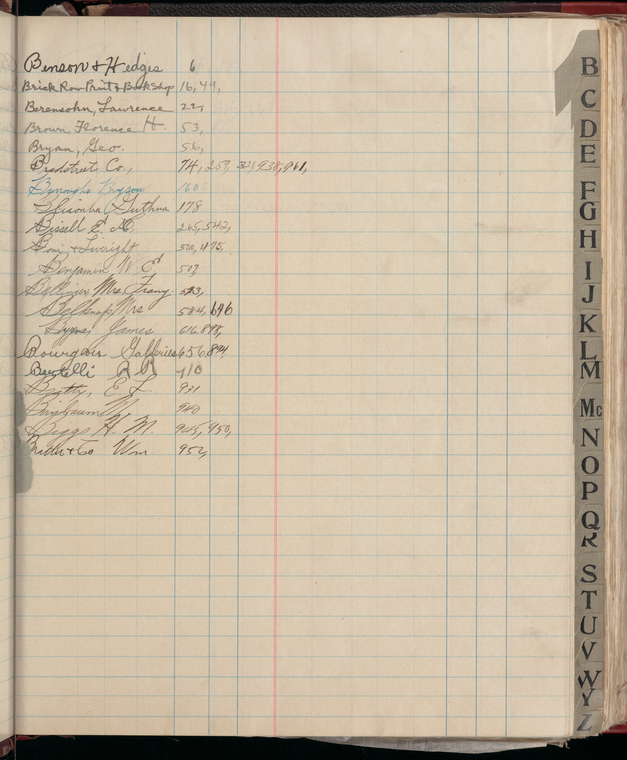 Benson & Hedges 6
Brick Row Print & Book Shop 16, 44,
Berensohn, Lawrence 22,
Brown, Florence H. 53,
Bryan, Geo. 56,
Bradstreet Co., 74, 259, 321, 938, 961,
Burroughs Bryson 160
Guthna 178
Bissell E. 265, 542,
Boni & Liveright 320, 475,
Benjamin W. E. 507
Bellinger Mrs. Franz 543,
Belknap Mrs 584, 646
Byrnes James 616, 898,
Bourgeois Galleries 656, 894,
Bertelli R R 710
Batty, E. L. 931
Birnbaum M. 940
Biggs H. M. 945, 950,
& Co Wm 952,
B
C
D
E
F
G
H
I
J
K
L
M
Mc
N
O
P
Q
R
S
T
U
V
W
Y
Z